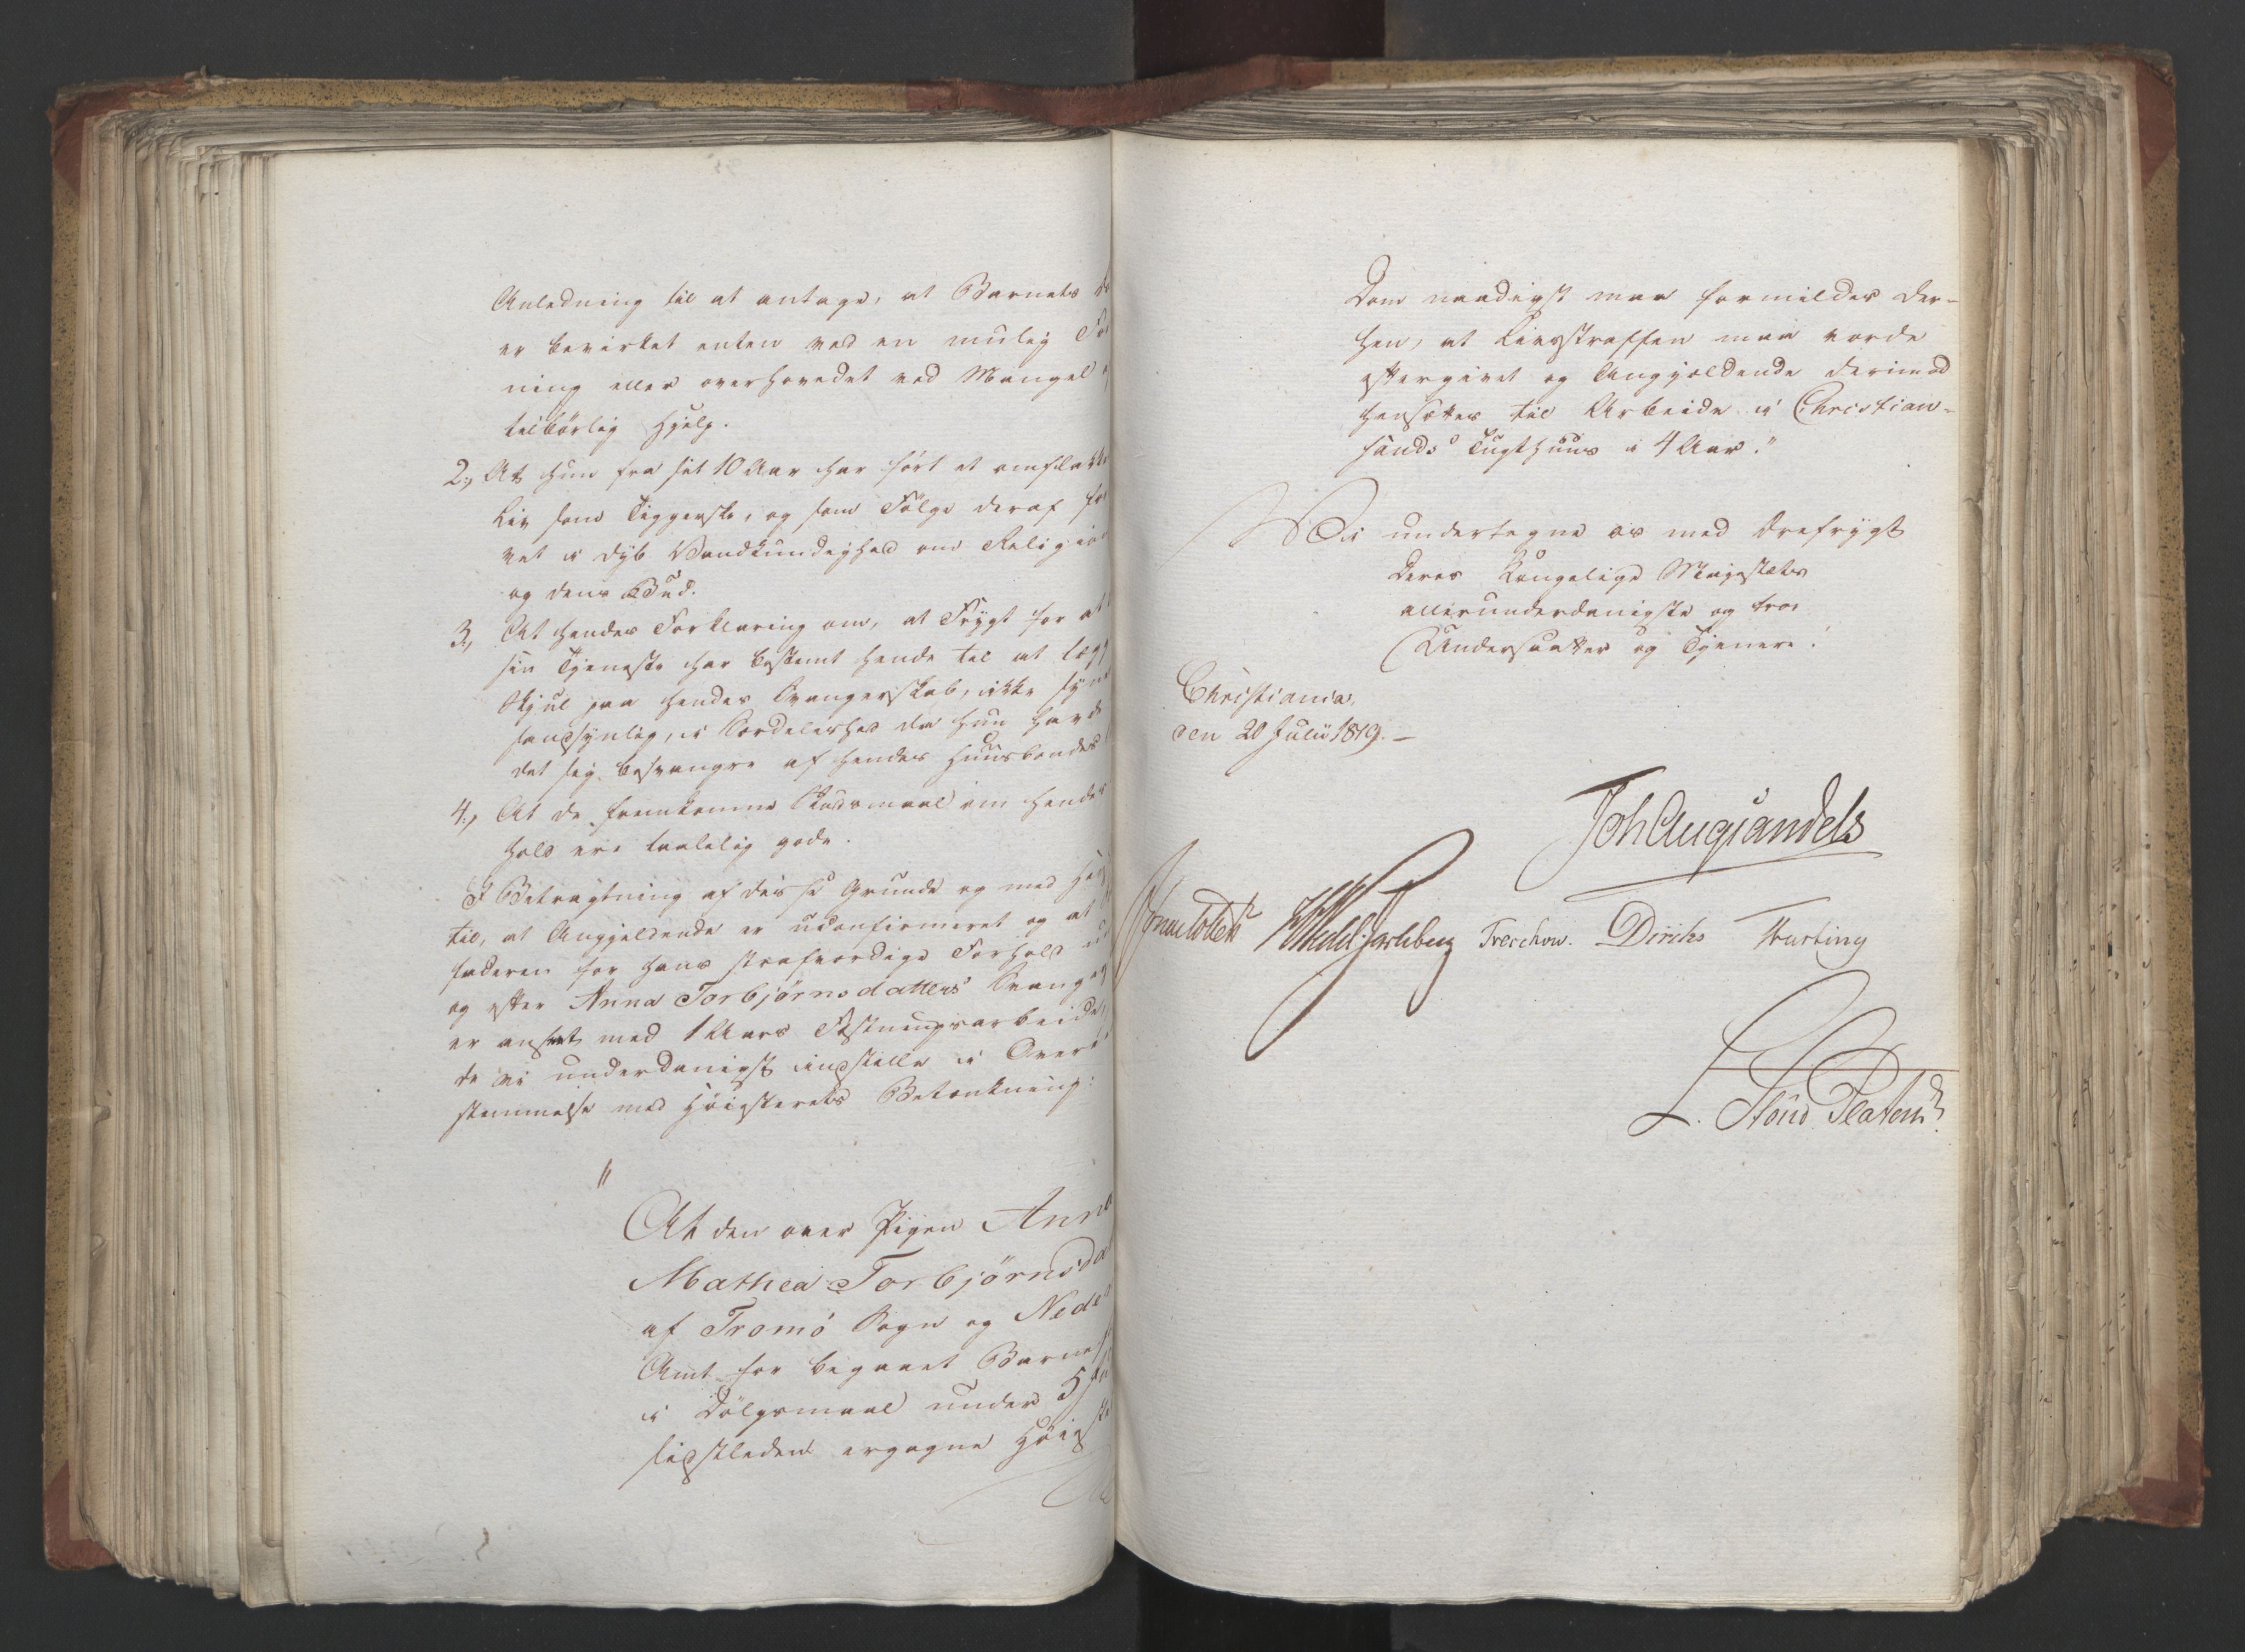 Anledning til at antage, at Barnets
er bevirket enten ved en mulig
ning eller overhovedet ved Mangel
tilbørlig Hjelp.
2., At hun fra sit 10 Aar har ført et omflakke
Liv som Tiggerske, og som Følge deraf
vet i dyb Vankundighed om Religion
og dens Bud.
3., At hendes Forklaring om, at Frygt for at
sin Tjeneste har bestemt hende til at lægg
Skjul paa hendes Svangerskab, ikke syne
sandsynlig, i Særdeleshed da hun havde
det sig besvangre af hendes Huusbonde
4., At de fremkomne Skudsmaal om hendes
hold ere taalelig gode.
I Betragtning af disse Grunde og med Hen
til, at Angjeldende er uconfirmeret og at
faderen for hans strafværdige Forhold
og efter Anna Torbjørnsdatters Svang
er anseet med 1 Aars Fæstningsarbeide,
de vi underdanigst indstille i Overe
stemmelse med Høiesterets Betænkning:
"
At den over Pigen Anna
Mathea Torbjørnsda
af Tromø Sogn og Nede
Amt for begaaet Barne
i Dølgsmaal under 5
sidstleden ergagne Høieste
Dom naadigst maa formildes der-
hen, at Livsstraffen maa vorde
eftergivet og Angjældende derimod
hensættes til Arbeide i Christian-
sands Tugthuus i 4 Aar."
Vi undertegne os med Ærefrygt
Deres Kongelige Majestæts
allerunderdanigste og troe
Undersaatter og Tjenere!
Christiania,
den 20 Julii 1819. –
Joh Aug Sandels
Jonas Collett HWedel Jarlsberg Treschow. Diriks Hasting
L. Stoud Platou